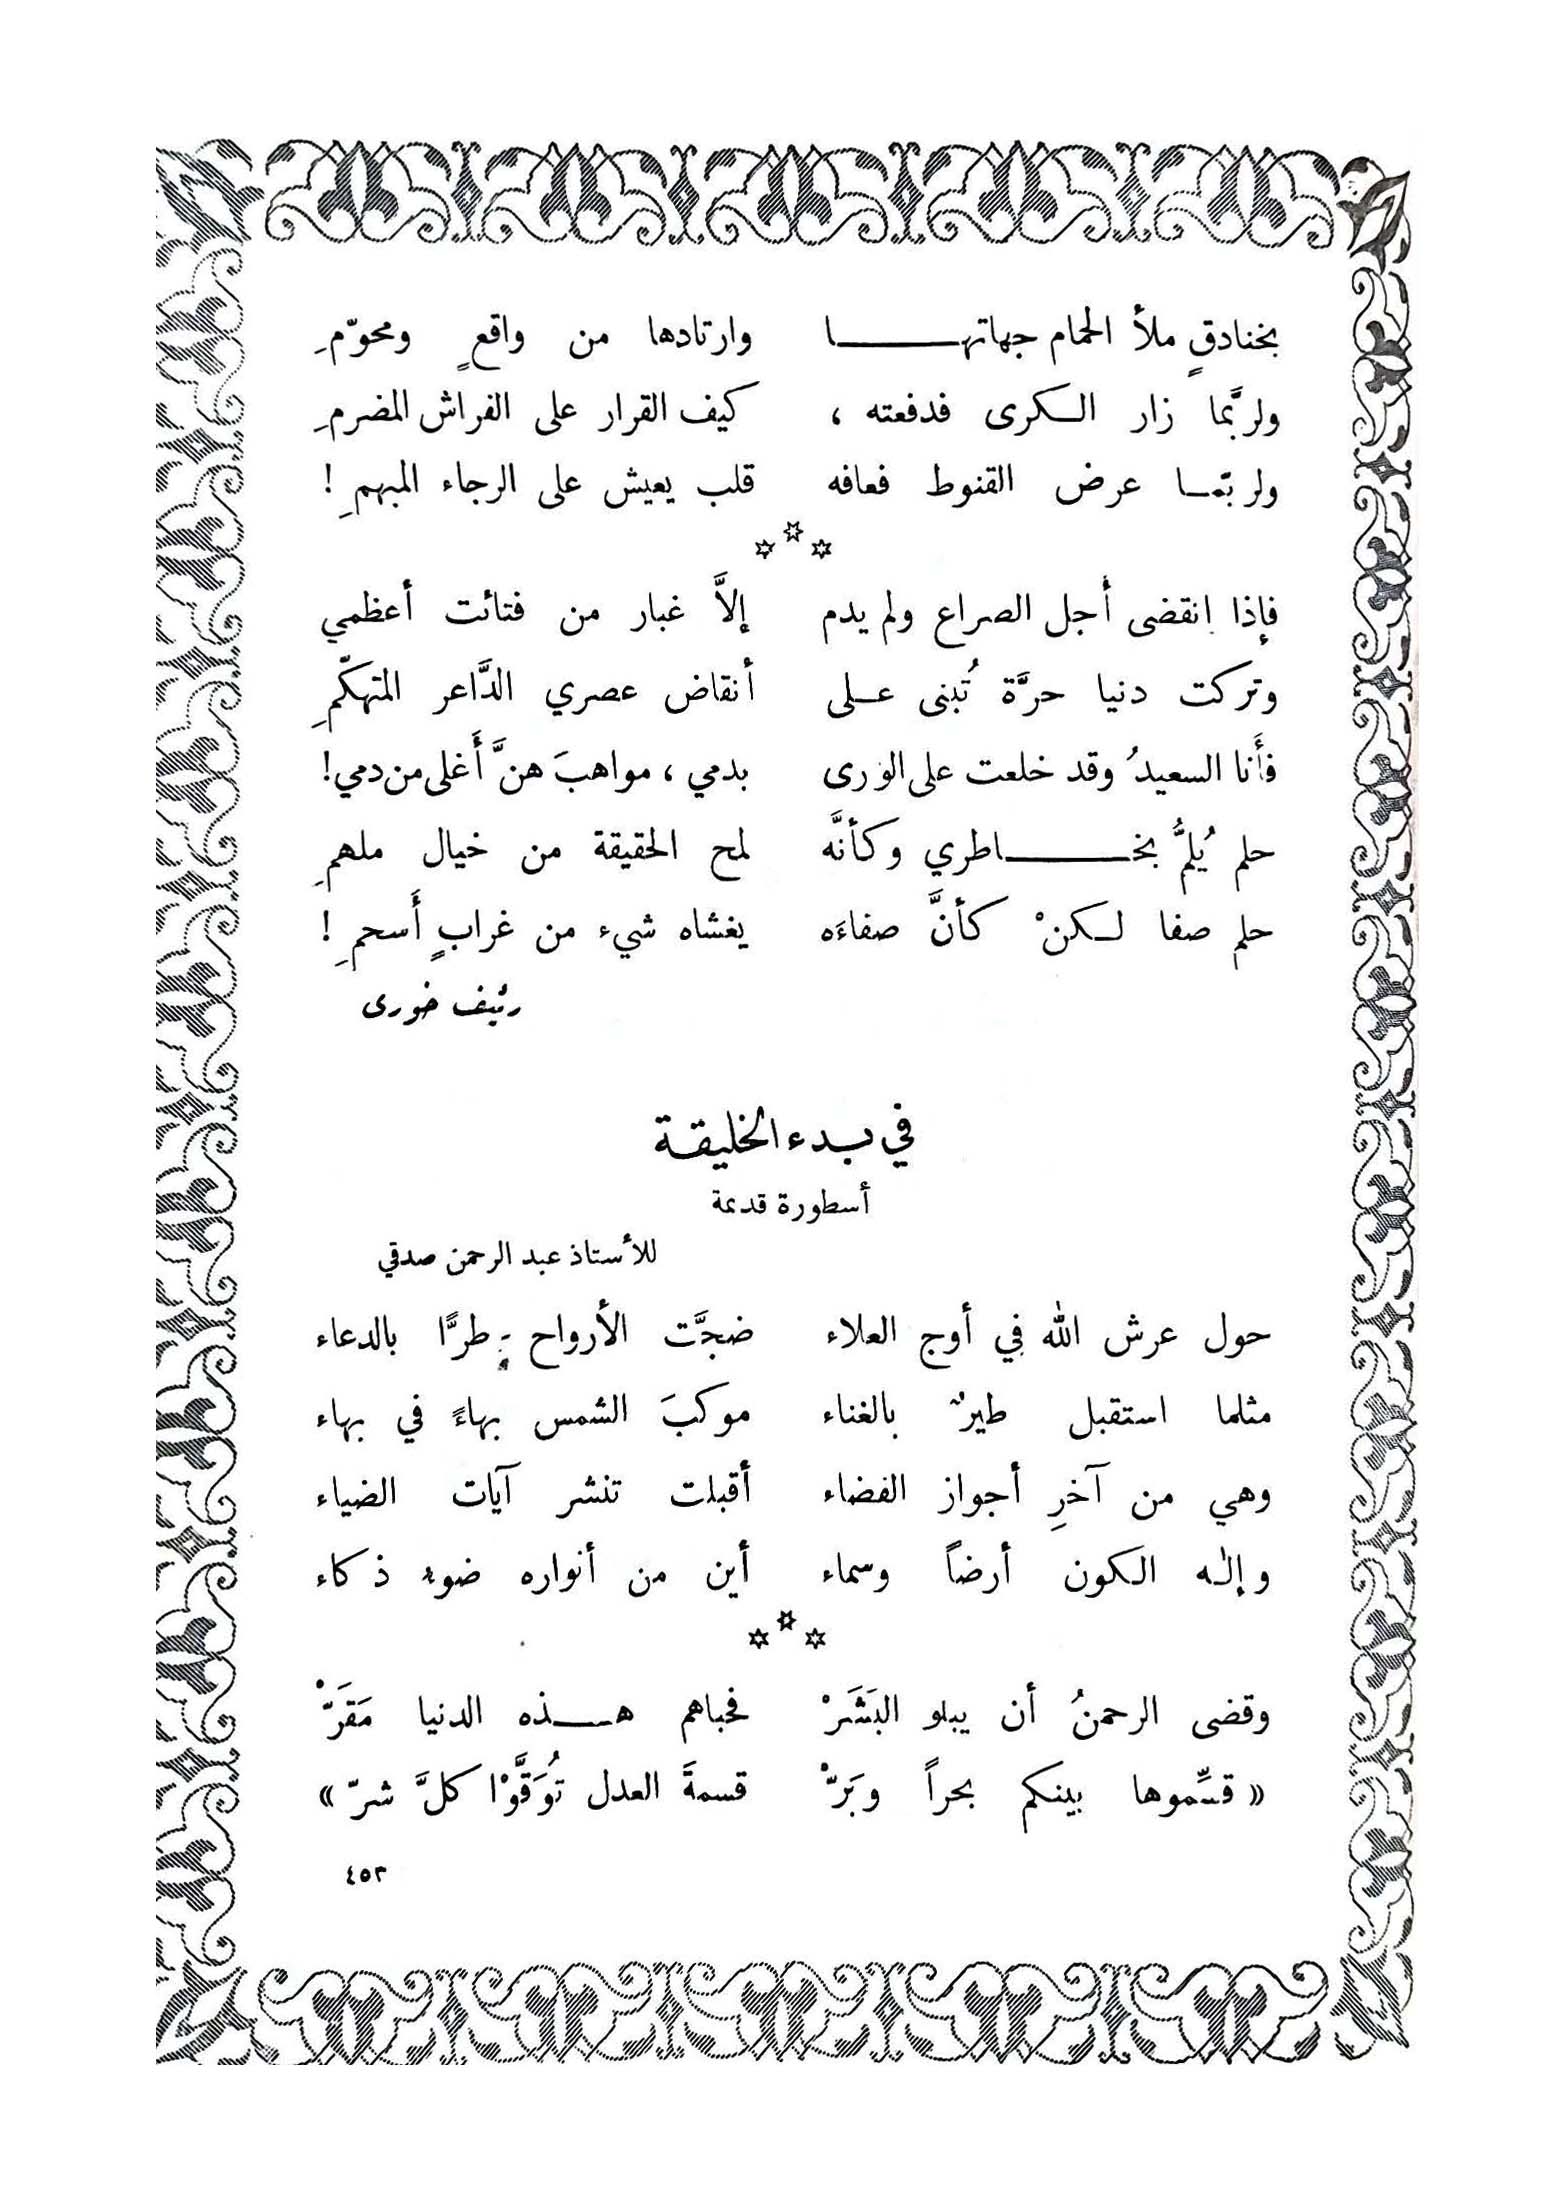 بخنادقٍ ملأ الحمام جهاتهـــا وارتادها من واقعٍ ومحوّمِ
ولربَّما زار الـكرى فدفعته ، كيف القرار على الفراش المضرمِ
ولربّمـا عرض القنوط فعافه قلب يعيش على الرجاء المبهمِ !
✡ ✡ ✡
فإذا انقضى أجل الصراع ولم يدم إلاَّ غبار من فتائت أعظمي
وتركت دنيا حرَّة تُبنى عـلى أنقاض عصري الدَّاعر المتهكّمِ
فأَنا السعيدُ وقد خلعت على الورى بدمي ، مواهبَ هنَّ أَغلى من دمي !
حلم يُلمُّ بخــاطري وكأنَّه لمح الحقيقة من خيال ملهمِ
حلم صفا لـكنْ كأنَّ صفاءَه يغشاه شيء من غرابٍ أَسحمِ !
رئيف خورى
في بدء الخليقة
أسطورة قديمة
للأستاذ عبد الرحمن صدقي
حول عرش الله في أوج العلاء ضجَّت الأرواح طرًّا بالدعاء
مثلما استقبل طيرٌ بالغناء موكبَ الشمس بهاءً في بهاء
وهي من آخرِ أجواز الفضاء أقبلت تنشر آيات الضياء
وإلٰه الكون أرضاً وسماء أين من أنواره ضوء ذكاء
✡ ✡ ✡
وقضى الرحمنُ أن يبلو البَشَرْ فحباهم هــذه الدنيا مَقَرّْ
« قسِّموها بينكم بحراً وبَرّْ قسمةَ العدل تُوَقَّوْا كلَّ شرّ »
٤٥٣